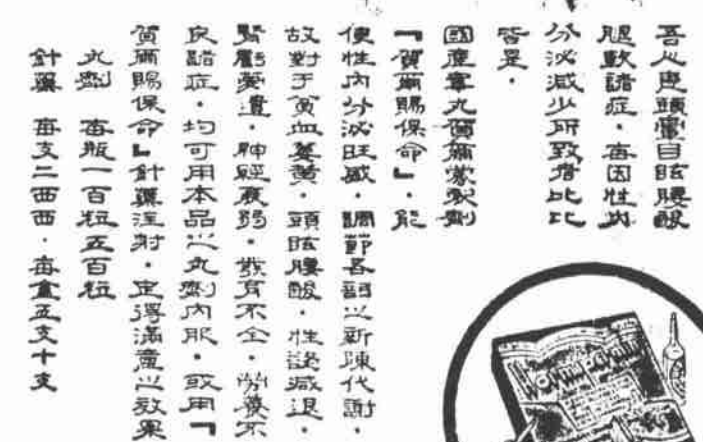 吾人患頭暈目眩腰酸
腿軟諸症．每因性內
分泌減少所致者比比
皆是．
國產睾丸賀爾蒙製劑
『賀爾賜保命』．能
使性內分泌旺盛．調節各部之新陳代謝．
故對于貧血萎黃．頭眩腰酸．性慾減退．
腎虧夢遺．神經衰弱．發育不全．營養不
良諸症．均可用本品之丸劑內服．或用『
賀爾賜保命』針藥注射．定得滿意之效果
丸劑　每瓶一百粒五百粒
針藥　每支二西西．每盒五支十支